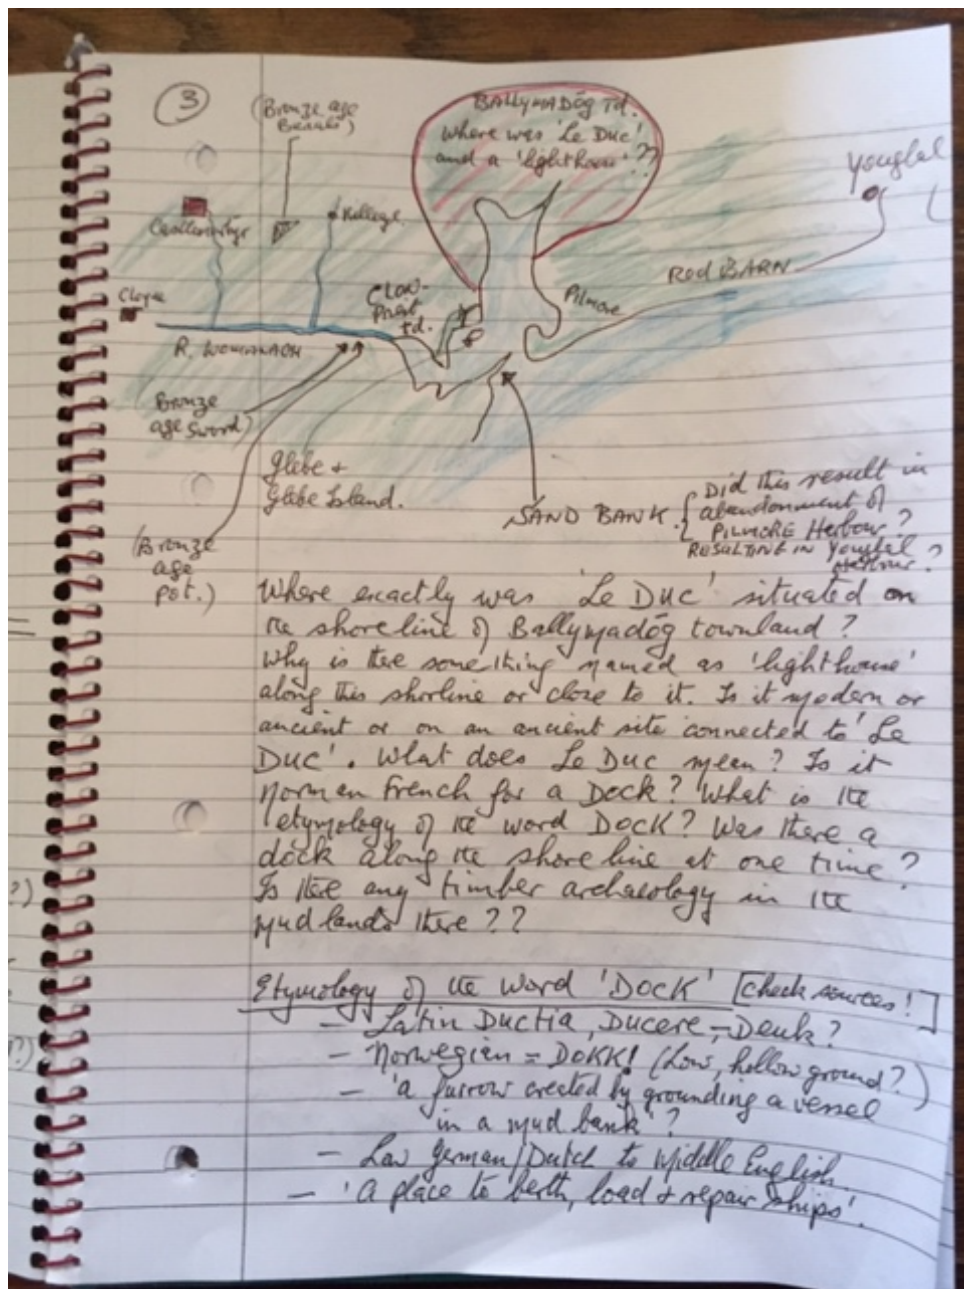 3
(Bronze age
Beads)
BALLYMADÓG Td.
Where was 'Le Duc'
and a 'lighthouse'??
Youghal
Castlemartyr
Killeagh
Red BARN
Cloyne
Clon-
Priest
td.
Pilmore
R. WOMANAGH
Bronze
age Sword)
Glebe +
Glebe Island.
SAND BANK.
Did this result in
abandonment of
PILMORE Harbour?
RESULTING IN Youghal
Harbour?
(Bronze
age
pot.)
Where exactly was 'Le Duc' situated on
the shoreline of Ballymadóg townland?
Why is there something named as 'lighthouse'
along this shorline or close to it. Is it modern or
ancient or on an ancient site connected to 'Le
Duc'. What does Le Duc mean? Is it
Norman French for a Dock? What is the
etymology of the word DOCK? Was there a
dock along the shoreline at one time?
Is there any timber archaeology in the
mudlands there??
Etymology of the word 'DOCK' [check sources!]
- Latin Ductia, Ducere = Deuk?
- Norwegian = DOKK! (Low, hollow ground?)
- 'a furrow created by grounding a vessel
in a mud bank'?
- Low German/Dutch to Middle English.
- 'A place to berth, load + repair ships'.